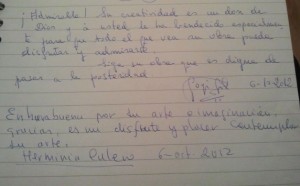 ¡Admirable! Su creatividad es un don de
Dios y a usted le ha bendecido
para que todo el que vea su obra pueda
disfrutar y admirarla.
Siga su obra que es digna de
pasar a la posteridad
6-10-2012
Enhorabuena por su arte e imaginación,
gracias, es mi disfrute y placer contemplar
su arte.
Herminia 6-oct 2012